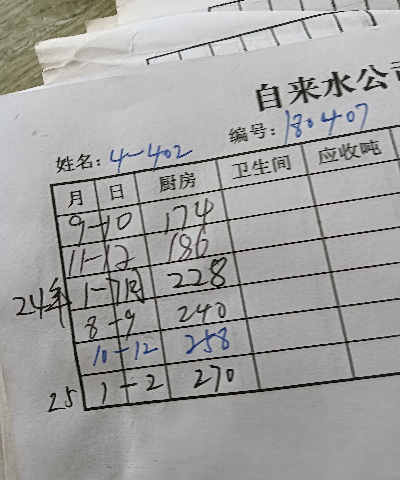 自来水公司
姓名：4-402 编号：180407
月 日 厨房 卫生间 应收吨
9-10 174
11-12 186
24年 1-7月 228
8-9 240
10-12 258
25 1-2 270